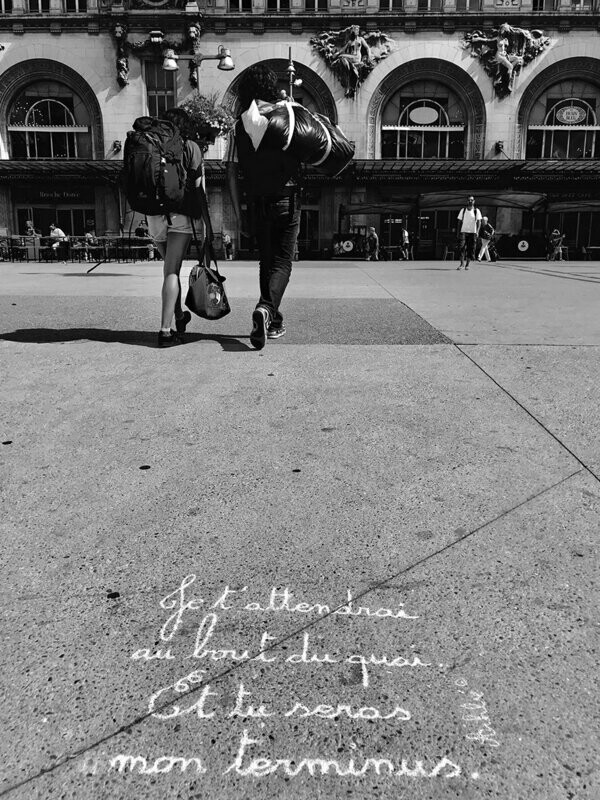 Je t'attendrai
au bout du quai.
Et tu seras
mon terminus.